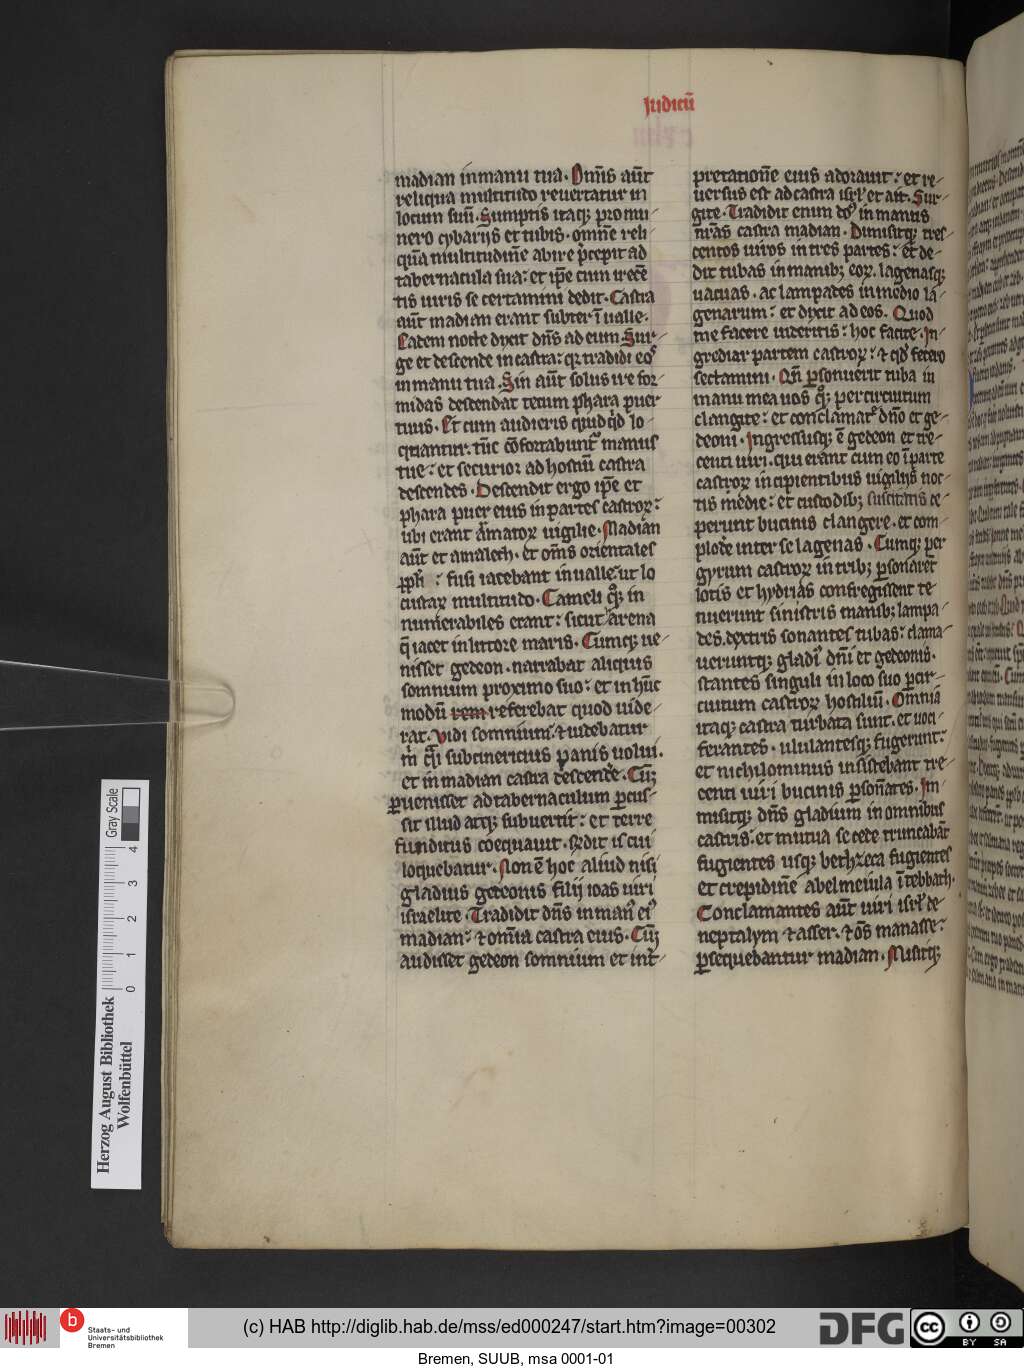 Judicū
madian in manu tua. Om̄s aūt
reliqua multitudo reuertatur in
locum suū. Sumptis itaq; pro nu/
nero cybarijs et tubis. omnē reli/
quā multitudinē abire p̄cepit ad
tabernacula sua: et ip̄e cum trecē
tis uiris se certamini dedit. Castra
aūt madian erant subter ī ualle.
Eadem nocte dixit dn̄s ad eum Sur/
ge et descende in castra: qꝛ tradidi eos
in manu tua. Sin aūt solus ire for/
midas descendat tecum phara puer
tuus. Et cum audieris quid qd lo/
quantur. tūc cōfortabunt᷑ manus
tue: et securior ad hostiū castra
descendes. Descendit ergo ip̄e et
phara puer eius in partes castroꝝ:
ubi erant armatoꝝ uigilie. Madian
aūt et amalech. et om̄s orientales
ppl̄i : fusi iacebant in ualle: ut lo
custaꝝ multitudo. Cameli qͦꝫ in
numerabiles erant: sicut harena
q̄ iacet in littore maris. Cumqꝫ ue/
nisset gedeon. narrabat aliquis
somnium proximo suo: et in hūc
modū rem referebat quod uide/
rat. Vidi somniuū: ⁊ uidebatur
m̄ q̄si subcinericius panis uolui.
et in madian castra descendē. Cūꝫ
ꝑuenisset ad tabernaculum ꝑcus/
sit illud atqꝫ subuertit: et terre
funditus coequauit. Rn̄dit is cui
loquebatur. Non ē hoc aliud nisi
gladius gedeonis filij ioas uiri
israelite. Tradidit dn̄s in man' ei'
madian: ⁊ om̄ia castra eius. Cūꝫ
audisset gedeon somnium et int̄/
pretationē eius adorauit: et re/
uersus est ad castra isrl̄ et ait. Sur/
gite. Tradidit enim dn̄s in manus
nr̄as castra madian. Diuisitqꝫ tres/
centos uiros in tres partes: et de/
dit tubas in manibꝫ eoꝝ. lagenasqꝫ
uacuas. ac lampades in medio la/
genarum: et dixit ad eos. Quod
me facere uideritis: hoc facite. In/
grediar partem castroꝝ: ⁊ qd fecero
sectamini. Qn̄ ꝑsonuerit tuba in
manu mea uos qͦꝫ per circuitum
clangite: et conclamate dn̄o et ge/
deoni. Ingressusqꝫ ē gedeon et tre/
centi uiri. qui erant cum eo ī parte
castroꝝ incipientibus uigilijs noc/
tis medie: et custodibꝫ suscitatis ce/
perunt bucinis clangere. et com/
plode inter se lagenas. Cumqꝫ per
gyrum castroꝝ in tribꝫ ꝑsonaret
locis et hydrias confregissent te/
nuerunt sinistris manibꝫ lampa/
des. dextris sonantes tubas: clama/
ueruntqꝫ gladi' dn̄i et gedeonis.
stantes singuli in loco suo ꝑcir/
cuitum castroꝝ hostiliū. Omnia
itaqꝫ castra turbata sunt. et uoci/
ferantes. ululantesqꝫ fugerunt:
et nichilominus insistebant tre/
centi uiri bucinis ꝑsonātes. Im/
misitqꝫ dn̄s gladium in omnibus
castris: et mutua se cede truncabāt
fugientes usqꝫ bethzeca fugientes
et crepidinē abelmeiula ī tebbath.
Conclamantes aūt uiri isrl̄ de/
neptalym ⁊ asser. ⁊ om̄s manasse:
ꝑsequebantur madian. Misitqꝫ
Gray Scale
0 1 2 3 4
Herzog August Bibliothek
Wolfenbüttel
b
Staats- und
Universitätsbibliothek
Bremen
(c) HAB http://diglib.hab.de/mss/ed000247/start.htm?image=00302
DFG
cc
BY SA
Bremen, SUUB, msa 0001-01